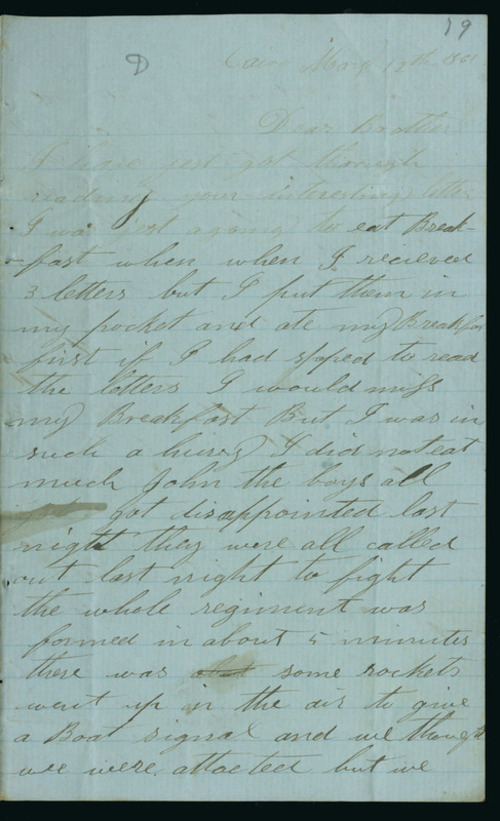 19
D
Cairo May 12th 1861
Dear Brother
I have just got through
reading your interesting letter
I was just agoing to eat Break-
fast when when I recieved
3 letters but I put them in
my pocket and ate my Breakfas
first if I had stoped to read
the letters I would miss
my Breakfast But I was in
such a hurry I did not eat
much John the boys all
got disappointed last
night they were all called
out last night to fight
the whole regiment was
formed in about 5 minutes
there was some rockets
went up in the air to give
a Boat signal and we thought
wee were attacted but we